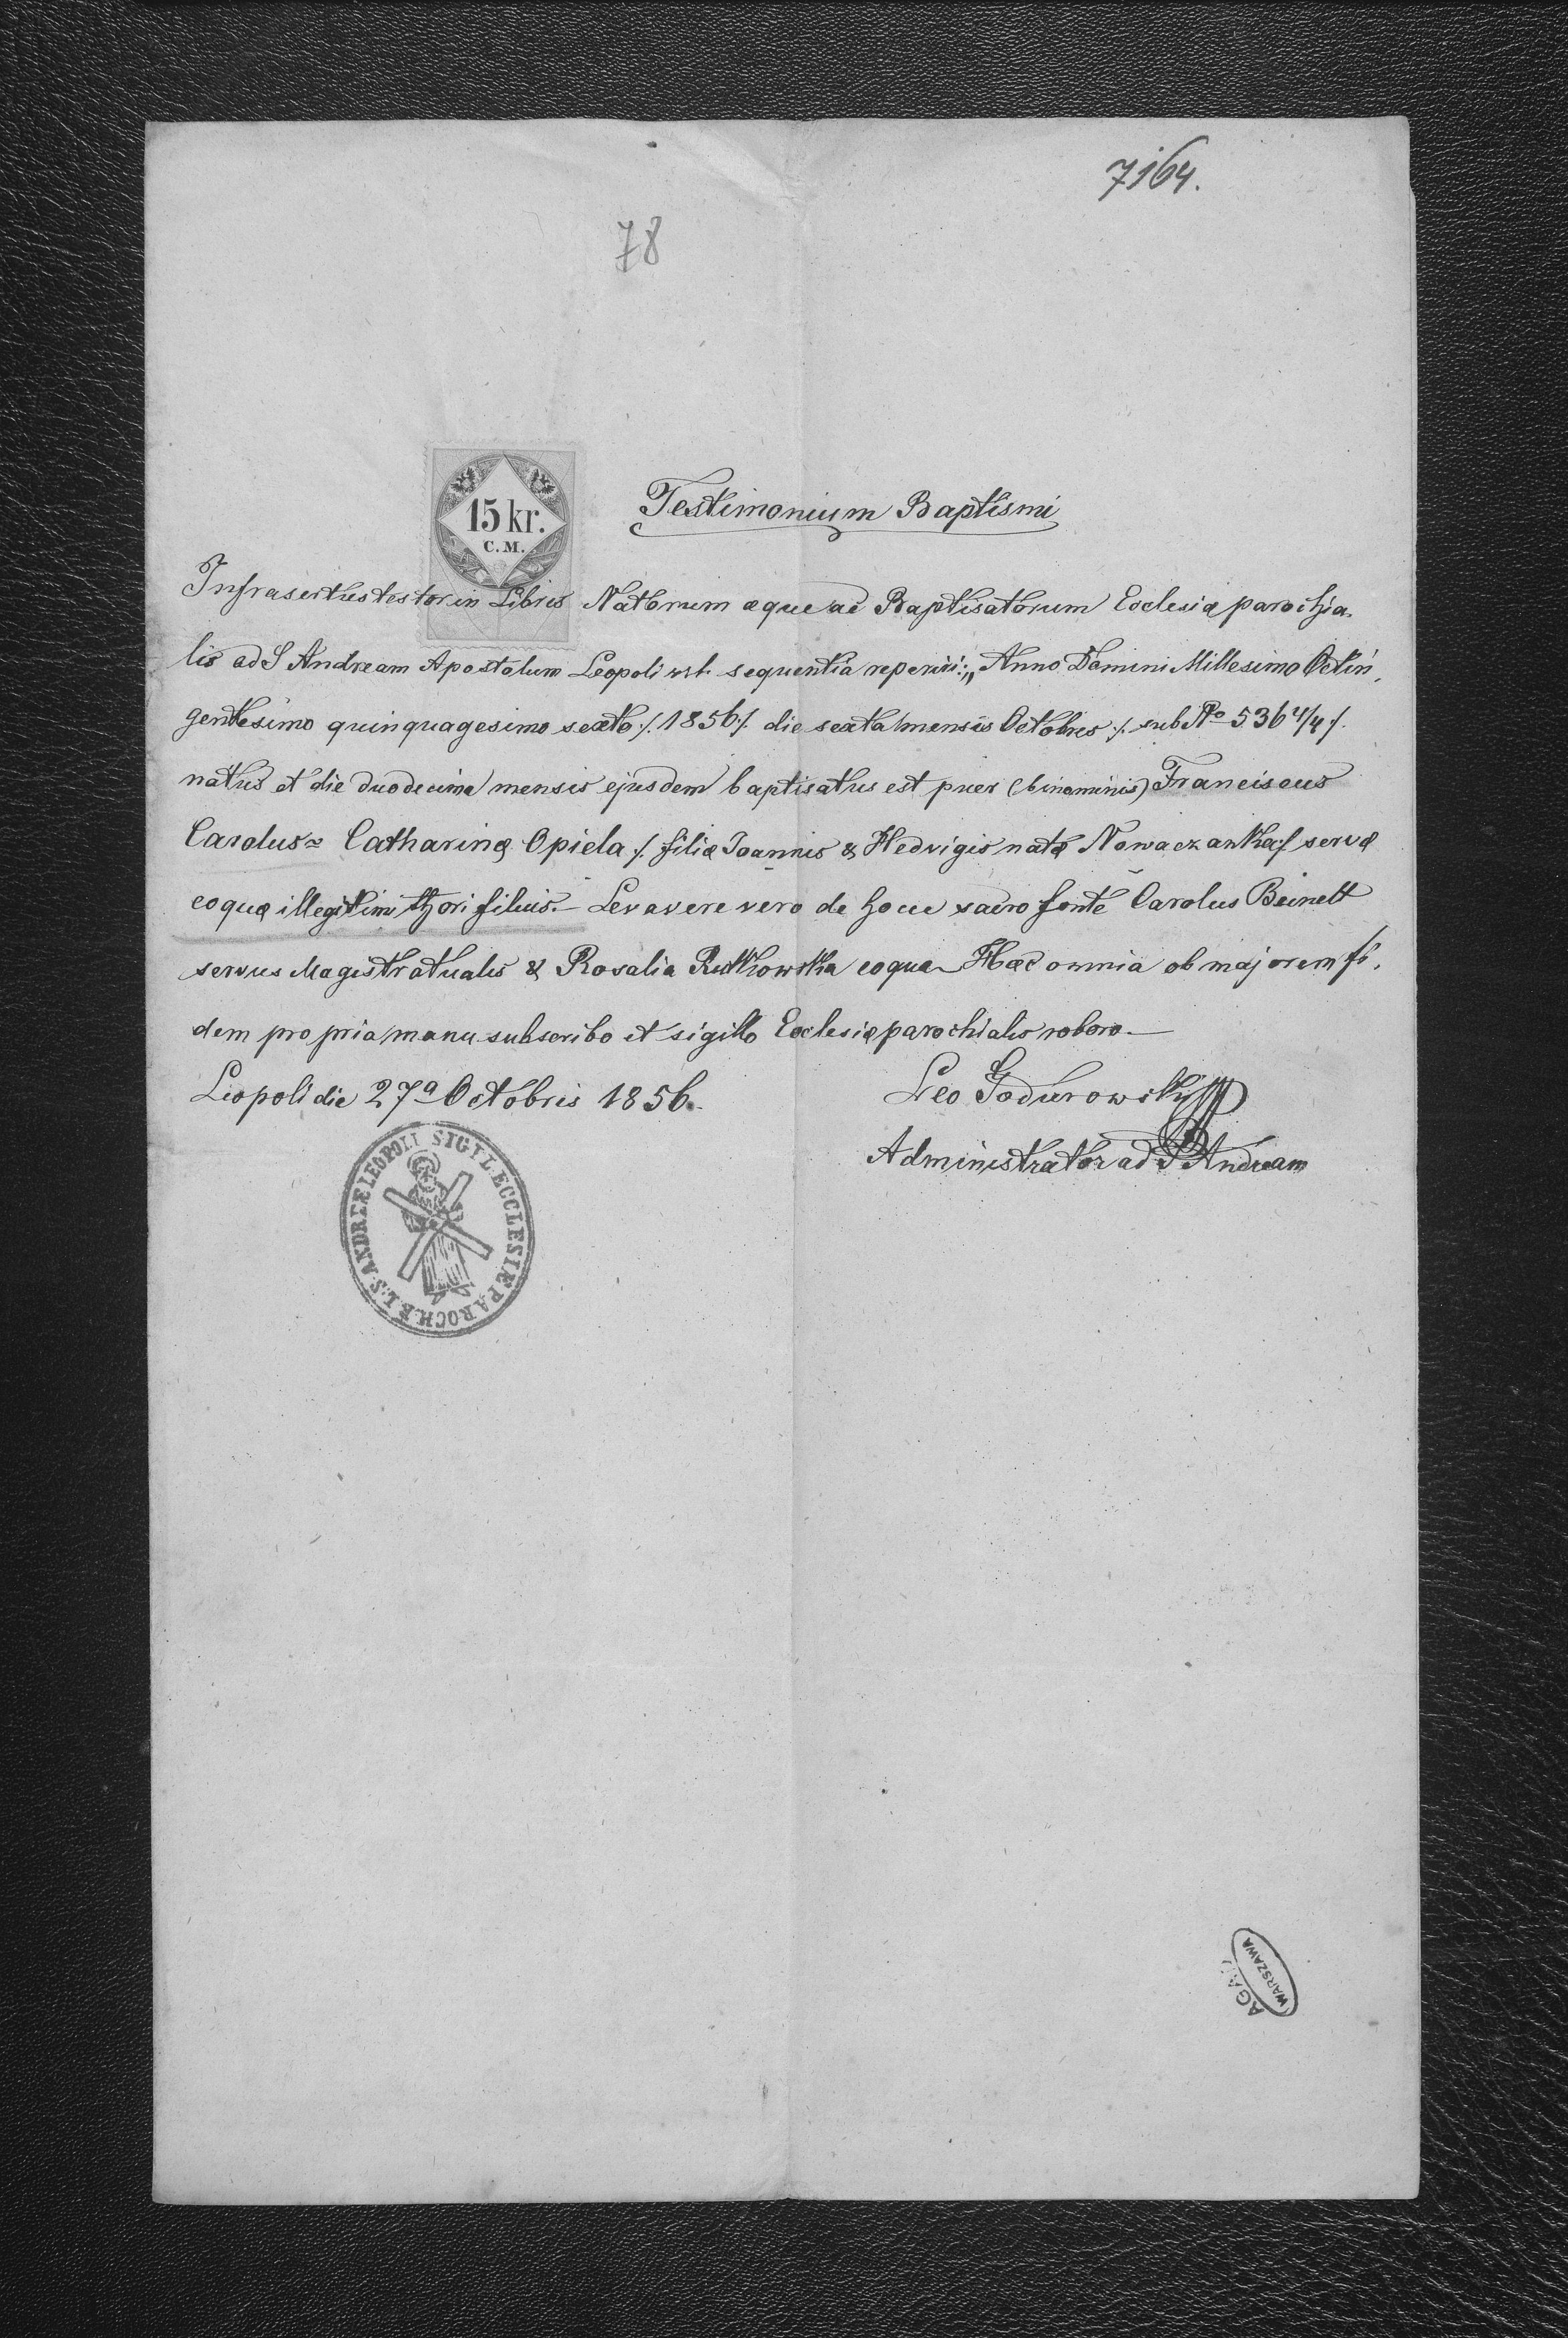 7164.
78
15 kr.
C.M.
Testimonium Baptismi
Infrascriptus testor in Libris Natorum æque ac Baptisatorum Ecclesiæ parochia-
lis ad S Andream Apostolum Leopoli sequentia reperiri: „Anno Domini Millesimo Octin,
gentesimo quinquagesimo sexto ./. 1856 ./. die sexta mensis Octobris ./. sub No 536 4/4 ./.
natus et die duodecima mensis ejusdem baptisatus est puer (binominis) Franciscus
Carolus Catharinæ Opiela ./. filiæ Joannis & Hedvigis natæ Nowaczanka ./. servæ
coquæ illegitimi thori filius. Levavere vero de hocce sacro fonte Carolus
servus Magistratualis & Rosalia Rutkowska coqua Hæc omnia ob majorem fi,
dem propria manu subscribo et sigillo Ecclesiæ parochialis roboro.
Leopoli die 27a Octobris 1856.
Leo
Administrator ad S Andream
SIGYL ECCLESIÆ PAROCH. R.L. S. ANDREÆ LEOPOLI
AGAD
WARSZAWA